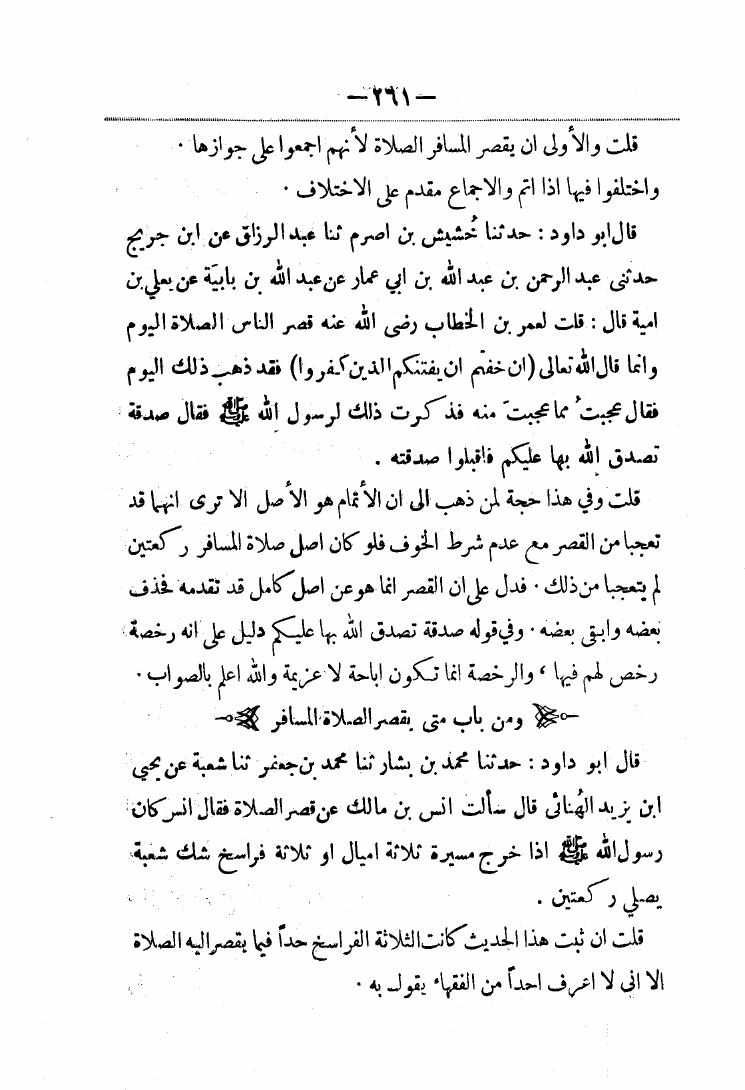 — ٢٦١ —
قلت والأولى ان يقصر المسافر الصلاة لأنهم اجمعوا على جوازها ·
واختلفوا فيها اذا اتم والاجماع مقدم على الاختلاف ·
قال ابو داود : حدثنا خُشيش بن اصرم ثنا عبد الرزاق عن ابن جريج
حدثنى عبد الرحمن بن عبد الله بن ابي عمار عن عبد الله بن بابيَة عن يعلى بن
امية قال : قلت لعمر بن الخطاب رضى الله عنه قصر الناس الصلاة اليوم
وانما قال الله تعالى (ان خفتم ان يفتنكم الذين كفروا) فقد ذهب ذلك اليوم
فقال عجبتُ مما عجبتَ منه فذكرت ذلك لرسول الله ﷺ فقال صدقة
تصدق الله بها عليكم فاقبلوا صدقته .
قلت وفي هذا حجة لمن ذهب الى ان الأتمام هو الأصل الا ترى انهما قد
تعجبا من القصر مع عدم شرط الخوف فلو كان اصل صلاة المسافر ركعتين
لم يتعجبا من ذلك · فدل على ان القصر انما هو عن اصل كامل قد تقدمه فحذف
بعضه وابقى بعضه · وفي قوله صدقة تصدق الله بها عليكم دليل على انه رخصة
رخص لهم فيها ، والرخصة انما تكون اباحة لا عزيمة والله اعلم بالصواب ·
ومن باب متى يقصر الصلاة المسافر
قال ابو داود : حدثنا محمد بن بشار ثنا محمد بن جعفر ثنا شعبة عن يحيى
ابن يزيد الهُنائى قال سألت انس بن مالك عن قصر الصلاة فقال انس كان
رسول الله ﷺ اذا خرج مسيرة ثلاثة اميال او ثلاثة فراسخ شك شعبة
يصلي ركعتين .
قلت ان ثبت هذا الحديث كانت الثلاثة الفراسخ حداً فيما يقصر اليه الصلاة
الا انى لا اعرف احداً من الفقهاء يقول به ·